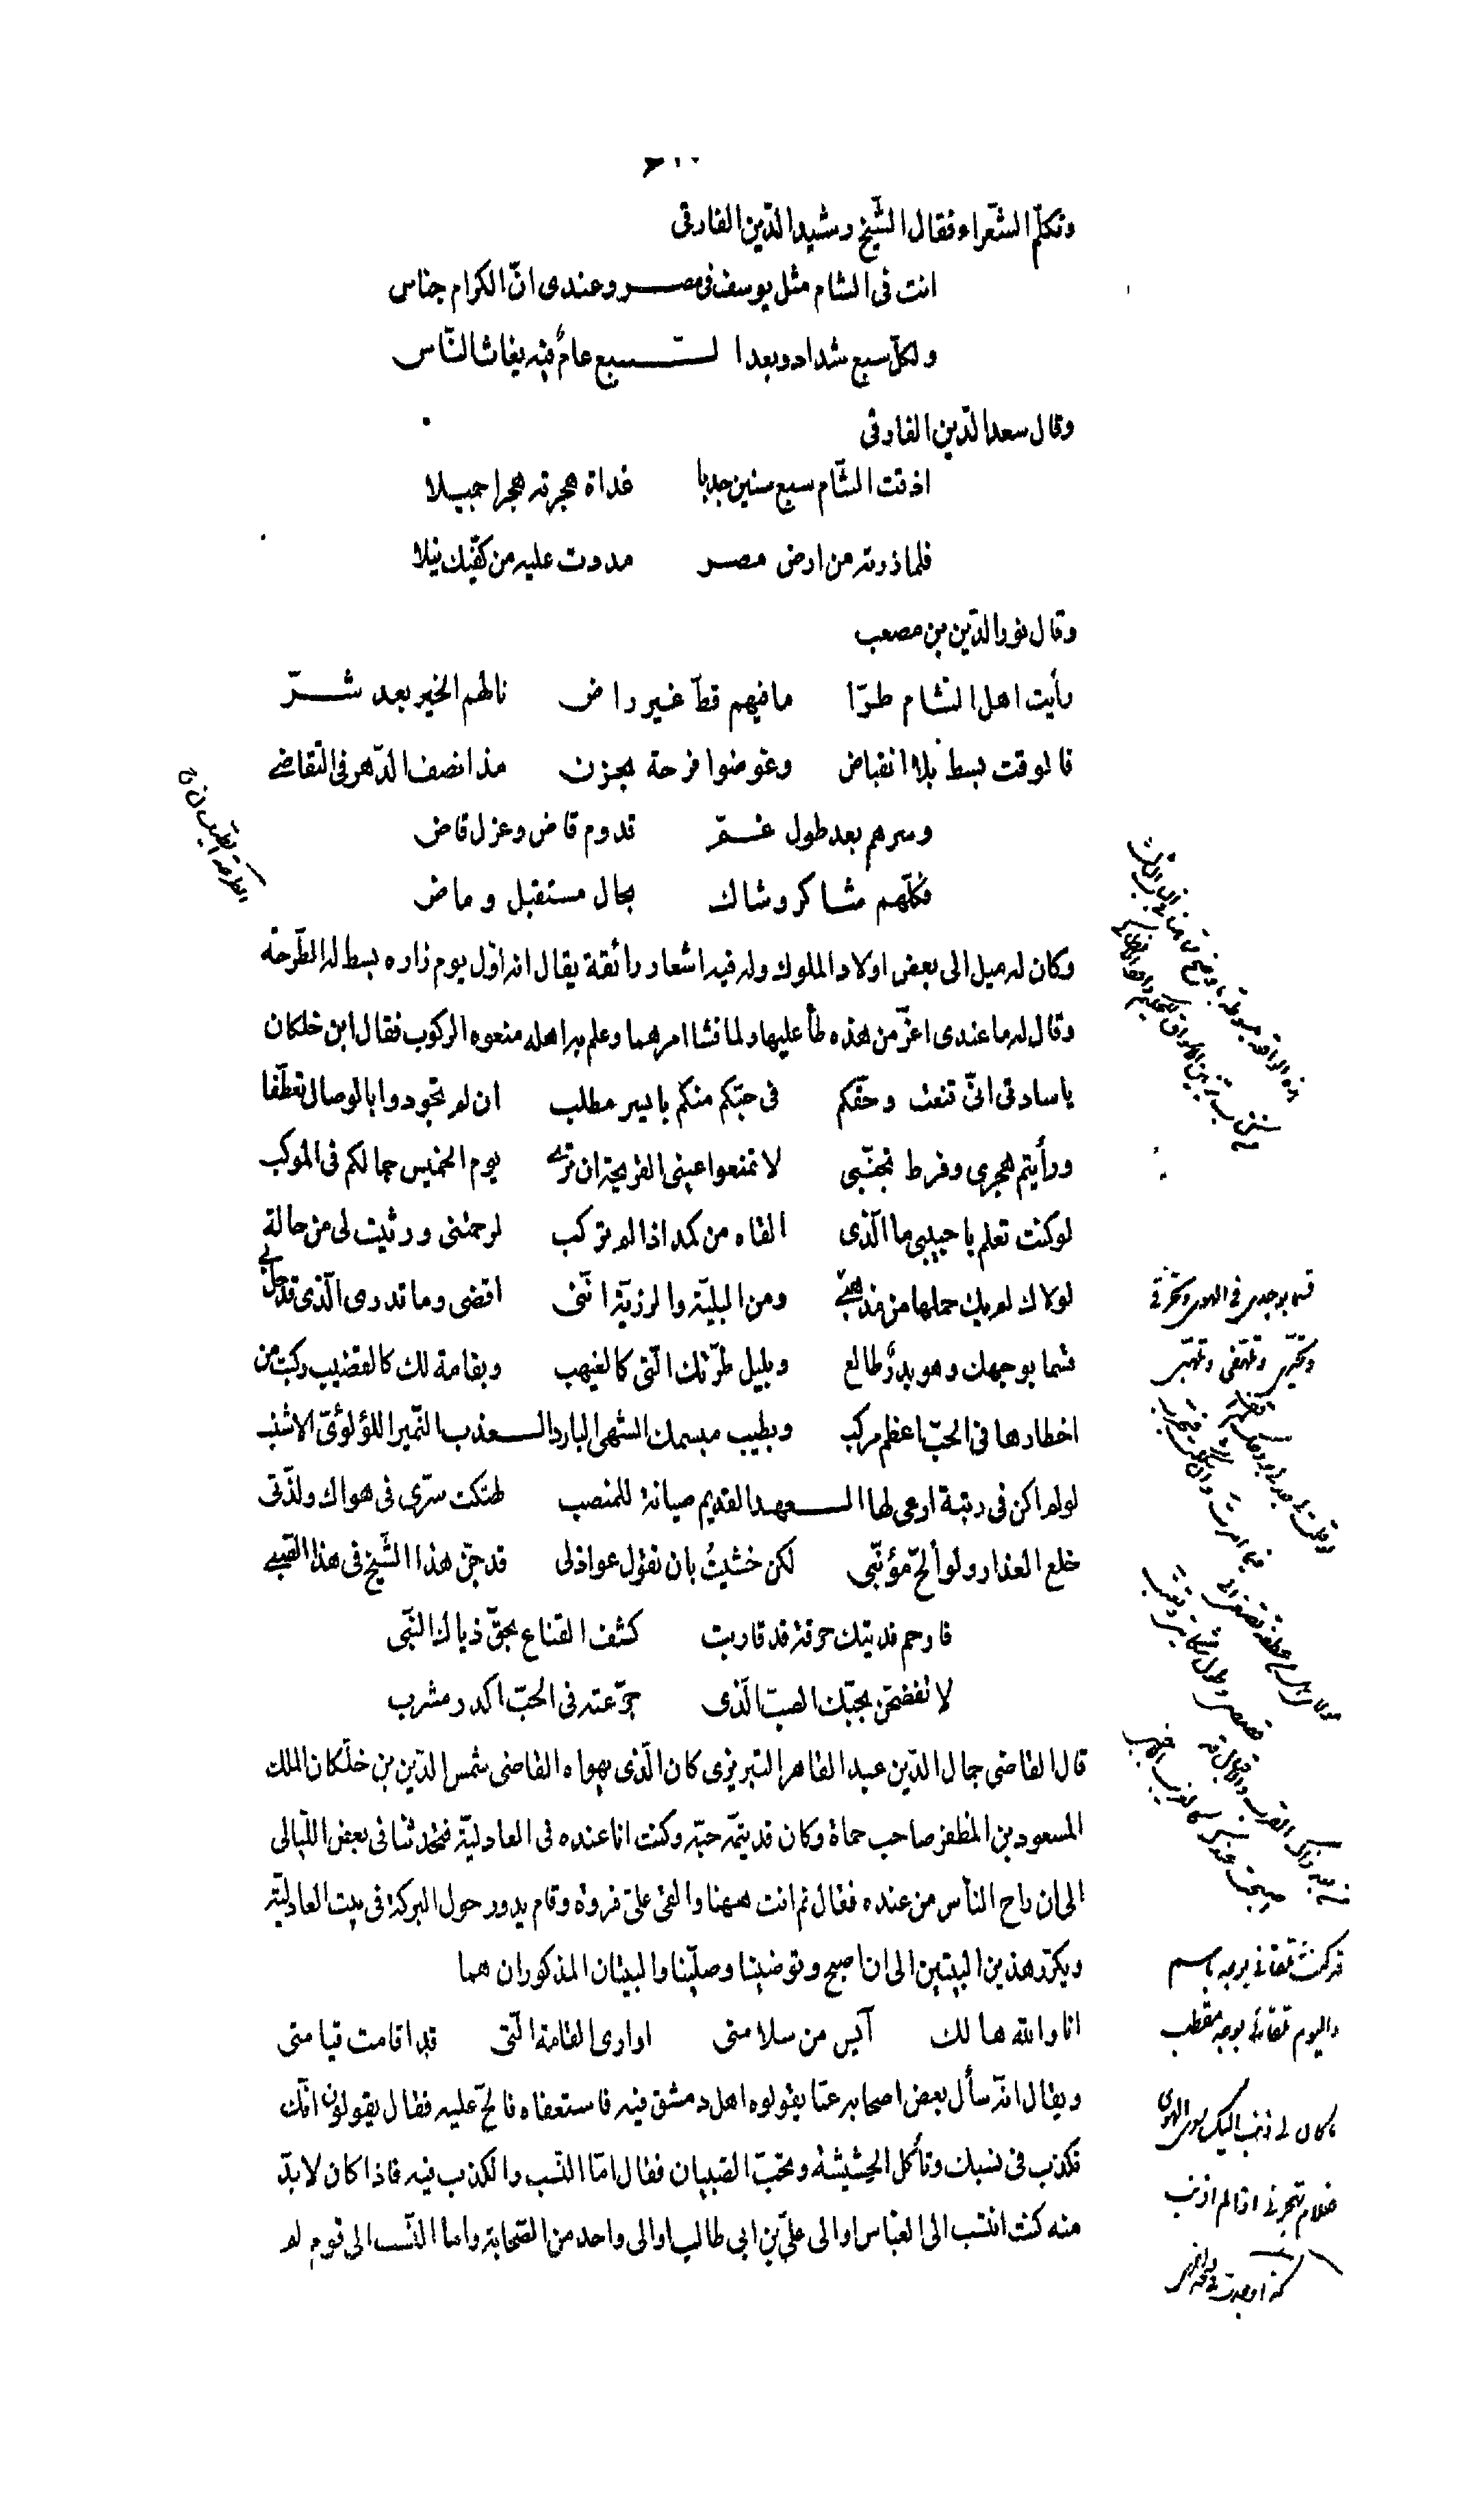 وتكلّم الشّعراء فقال الشّيخ رشيد الدّين الفارقى
انت فى الشام مثل يوسف فى مصر وعندى انّ الكرام جناس
ولكلّ سبع شداد وبعد السّبع عامٌ فيه يغاث النّاس
وقال سعد الدّين الفارقى
اذقت الشّام سبع سنين جدبا غداة هجرته هجرا جميلا
فلما زرته من ارض مصر مددت عليه من كفّيك نيلا
وقال نور الدّين بن مصعب
رأيت اهل الشام طرّا ما فيهم قطّ غير راض نالهم الخير بعد شرّ
فالوقت بسط بلا انقباض وعوضوا فرحة بحزن مذ انصف الدّهر فى التّقاضى
وسرهم بعد طول غمّ قدوم قاض وعزل قاض
فكلّهم شاكر وشاك بحال مستقبل وماض
وكان له ميل الى بعض اولاد الملوك وله فيه اشعار رائقة يقال انه اوّل يوم زاره بسط له الطّرحة
وقال له ما عندى اعزّ من هذه طأ عليها ولما فشا امرهما وعلم به اهله منعوه الركوب فقال ابن خلكان
يا سادتى انّى قنعت وحقّكم فى حبّكم منكم بايسر مطلب ان لم تجودوا بالوصال تعطّفا
ورأيتم هجرى وفرط تجنّبى لا تمنعوا عينى القريحة ان ترى يوم الخميس جمالكم فى الموكب
لو كنت تعلم يا حبيبى ما الّذى القاه من كمد اذا لم تركب لرحمتنى ورثيت لى من حالة
لولاك لم يك حملها من مذهبى ومن البليّة والرزيّة انّنى اقضى وما تدرى الّذى قد حلّ بى
قسما بوجهك وهو بدرٌ طالع وبليل طرّتك الّتى كالغيهب وبقامة لك كالقضيب ركبت من
اخطارها فى الحبّ اعظم مركب وبطيب مبسمك الشهى البارد العذب النّمير اللؤلؤىّ الاشنب
لو لم اكن فى رتبة ارعى لها العهد القديم صيانة للمنصب لهتكت سترى فى هواك ولذّ لى
خلع العذار ولو ألحّ مؤنّبى لكن خشيتُ بان تقول عواذلى قد جنّ هذا الشّيخ فى هذا الصّبى
فارحم فديتك حرقة قد قاربت كشف القناع بحقّ ذيّاك النّبى
لا تفضحن بحبّك الصبّ الّذى جرّعته فى الحبّ اكدر مشرب
قال القاضى جمال الدّين عبد القاهر التبريزى كان الّذى يهواه القاضى شمس الدّين بن خلّكان الملك
المسعود بن المظفر صاحب حماة وكان قد تيّمه حبّه وكنت انا عنده فى العادليّة فتحدثنا فى بعض اللّيالى
الى ان راح النأس من عنده فقال نم انت ههنا والقى علىّ فروة وقام يدور حول البركة فى بيت العادليّة
ويكرّر هذين البيتين الى ان اصبح وتوضينا وصلّينا والبيتان المذكوران هما
انا والله هالك آيس من سلامتى او ارى القامة الّتى قد اقامت قيامتى
ويقال انّه سأل بعض اصحابه عمّا يقولوه اهل دمشق فيه فاستعفاه فالحّ عليه فقال يقولون انّك
تكذب فى نسبك وتأكل الحشيشة وتحبّ الصّبيان فقال امّا النّسب والكذب فيه فاذا كان لا بدّ
منه كنت انتسب الى العبّاس او الى علىّ بن ابى طالب او الى واحد من الصّحابة واما النّسب الى قوم لم
قد كنت تلقانى بوجه باسم
واليوم تلقانى بوجه مقطب
ما كان لى ذنب اليك سوى الهوى
فعلام تهجرنى اذا لم اذنب